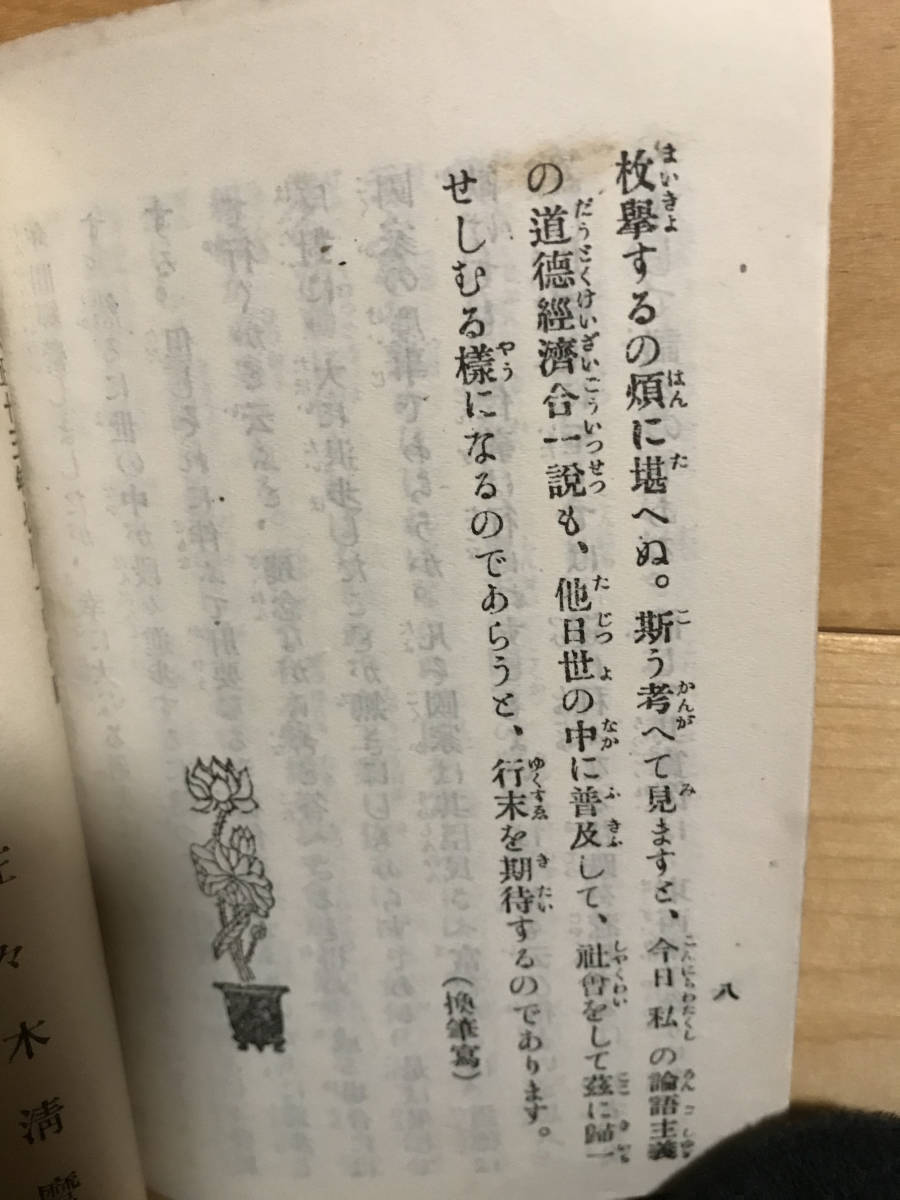 枚擧するの煩に堪へぬ。斯う考へて見ますと、今日私の論語主義
の道德經濟合一說も、他日世の中に普及して、社會をして茲に歸一
せしむる樣になるのであらうと、行末を期待するのであります。
(換筆寫)
八
々木淸